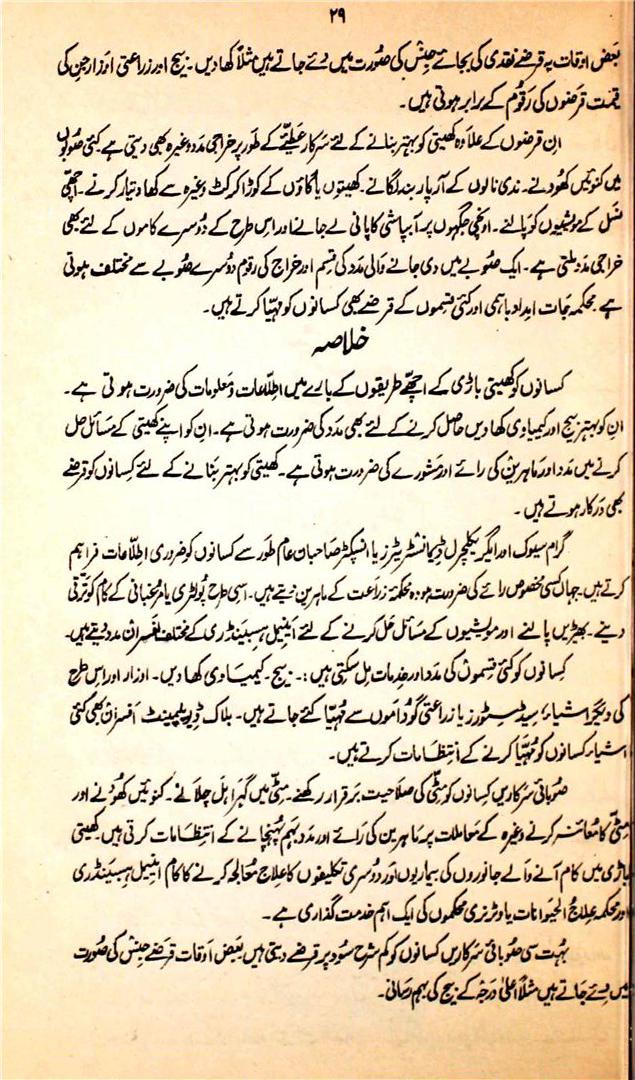 ۲۹
بعض اوقات یہ قرضے نقدی کی بجائے جنِس کی صُورت میں دئے جاتے ہیں مثلاً کھادیں۔ بیج اور زراعتی اوزار جِن کی
قیمت قرضوں کی رقُوم کے برابر ہوتی ہیں۔
اِن قرضوں کے علاوہ کھیتی کو بہتر بنانے کے لئے سرکار عطیّے کے طَور پر خراجی مدد وغیرہ بھی دیتی ہے کئی صُوبوں
میں کنوئیں کھودنے۔ ندی نالوں کے آر پار بند لگانے۔ کھیتوں یا گاؤں کے کوڑا کرکٹ وغیرہ سے کھاد تیار کرنے۔ اچھّی
نسل کے مویشیوں کو پالنے۔ اونچی جگہوں پر آبپاشی کا پانی لے جانے اور اِس طرح کے دُوسرے کاموں کے لئے بھی
خراجی مدد ملتی ہے۔ ایک صُوبے میں دی جانے والی مدد کی قِسم اور خراج کی رقوم دوسرے صُوبے سے مختلف ہوتی
ہے۔ محکمہ جات امِداد باہمی اور کئی قِسموں کے قرضے بھی کسانوں کو مہیّا کرتے ہیں۔
خلاصہ
کسانوں کو کھیتی باڑی کے اچھّے طریقوں کے بارے میں اطلّاعات و معلومات کی ضرورت ہوتی ہے۔
ان کو بہتر بیج اور کیمیاوی کھادیں حاصل کرنے کے لئے بھی مدد کی ضرورت ہوتی ہے۔ ان کو اپنے کھیتی کے مسائل حل
کرنے میں مدد اور ماہرین کی رائے اور مشورے کی ضرورت ہوتی ہے۔ کھیتی کو بہتر بنانے کے لئے کِسانوں کو قرضے
بھی درکار ہوتے ہیں۔
گرام سیوک اور ایگریکلچرل ڈیمانسٹریٹرز یا انسپکٹر صاحبان عام طَور سے کسانوں کو ضروری اطلّاعات فراہم
کرتے ہیں۔ جہاں کسی مخصُوص رائے کی ضرورت ہو وہ محکمۂ زراعت کے ماہرین دیتے ہیں۔ اسی طرح پولٹری یا مرغبانی کے کام کو ترقی
دینے۔ بھیڑیں پالنے اور مویشیوں کے مسائل حل کرنے کے لئے اینیمل ہسبینڈری کے مختلف افسران مدد دیتے ہیں۔
کسانوں کو کئی قِسموں کی مدد اور خِدمات مِل سکتی ہیں:۔ بیج۔ کیمیاوی کھادیں۔ اوزار اور اِس طرح
کی دیگر اشیاء، سیڈ سٹورز یا زراعتی گوداموں سے مُہیّا کئے جاتے ہیں۔ بلاک ڈیولپمینٹ افسران بھی کئی
اشیاء کسانوں کو مُہیّا کرنے کے انتظامات کرتے ہیں۔
صُوبائی سرکاریں کِسانوں کو مِٹّی کی صلاحیت برقرار رکھنے۔ مِٹّی میں گہرا ہل چلانے۔ کنوئیں کھودنے اور
مِٹّی کا مُعائنہ کرنے وغیرہ کے معاملات پر ماہرین کی رائے اور مدد بہم پہنچانے کے انتظامات کرتی ہیں۔ کھیتی
باڑی میں کام آنے والے جانوروں کی بیماریوں اور دوسری تکلیفوں کا علاج معالجہ کرنے کا کام اینیمل ہسبینڈری
اور محکمہ علاج الحیوانات یا وٹرنری محکموں کی ایک اہم خدمت گذاری ہے۔
بہُت سی صُوبائی سرکاریں کسانوں کو کم شرح سُود پر قرضے دیتی ہیں۔ بعض اوقات قرضے جِنس کی صُورت
میں دئے جاتے ہیں مثلاً اعلیٰ درجہ کے بیج کی بہم رسانی۔